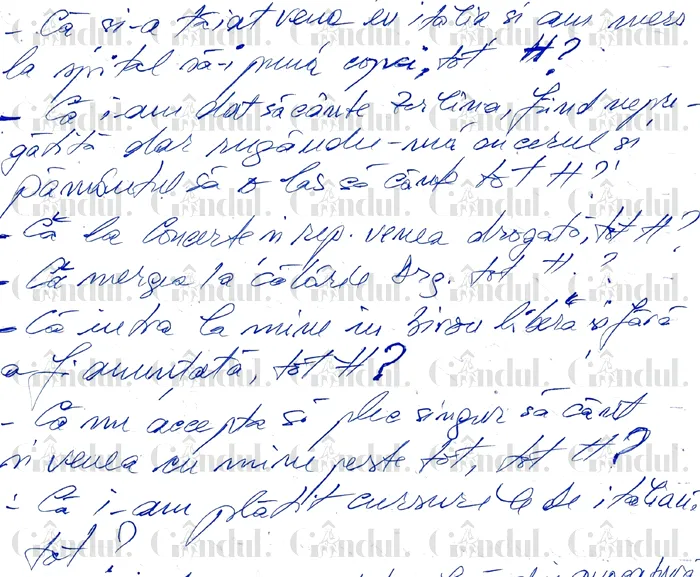 - Că și-a tăiat vena în italia si am mers
la spital să-i pună copci, tot H?
- Că i-am dat să cânte Zerlina, fiind nepre-
gătită dar rugându-mă cu cerul si
pământul să o las să cânte tot H?
- Că la Concerte si rep. venea drogată, tot H?
- Că mergea la călărie Drg. tot H?
- Că intra la mine in birou liberă si fără
a fi anunțată, tot H?
- Că nu accepta să plec singur să cânt
si venea cu mine peste tot, tot H?
- Că i-am plătit cursurile de italiană,
tot?
Gândul.